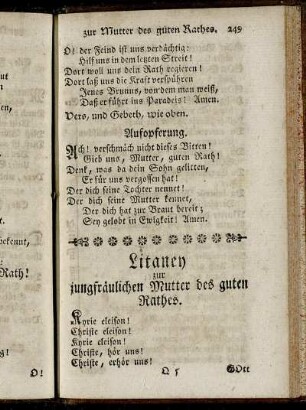 zur Mutter des guten Rathes. 249
O! der Feind ist uns verdächtig:
Hilf uns in dem letzten Streit!
Dort woll uns dein Rath regieren!
Dort laß uns die Kraft verspühren
Jenes Brunns, von dem man weiß,
Daß er führt ins Paradeis! Amen.
Vers, und Gebeth, wie oben.
Aufopferung.
Ach! verschmäh nicht dieses Bitten!
Gieb uns, Mutter, guten Rath!
Denk, was da dein Sohn gelitten,
Er für uns vergossen hat!
Der dich seine Tochter nennet!
Der dich seine Mutter kennet,
Der dich hat zur Braut bereit;
Sey gelobt in Ewigkeit! Amen.
Litaney
zur
jungfräulichen Mutter des guten
Rathes.
Kyrie eleison!
Christe eleison!
Kyrie eleison!
Christe, hör uns!
Christe, erhör uns!
Q 5 GOtt